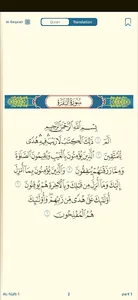 Al-Baqarah Quran Translation
سُورَةُ البَقَرَةِ
بِسْمِ ٱللَّهِ ٱلرَّحْمَٰنِ ٱلرَّحِيمِ
الٓمٓ ۝١ ذَٰلِكَ ٱلْكِتَٰبُ لَا رَيْبَ ۛ فِيهِ ۛ هُدًى
لِّلْمُتَّقِينَ ۝٢ ٱلَّذِينَ يُؤْمِنُونَ بِٱلْغَيْبِ وَيُقِيمُونَ ٱلصَّلَوٰةَ
وَمِمَّا رَزَقْنَٰهُمْ يُنفِقُونَ ۝٣ وَٱلَّذِينَ يُؤْمِنُونَ بِمَآ أُنزِلَ
إِلَيْكَ وَمَآ أُنزِلَ مِن قَبْلِكَ وَبِٱلْءَاخِرَةِ هُمْ يُوقِنُونَ ۝٤
أُو۟لَٰٓئِكَ عَلَىٰ هُدًى مِّن رَّبِّهِمْ ۖ وَأُو۟لَٰٓئِكَ
هُمُ ٱلْمُفْلِحُونَ ۝٥
2 part 1